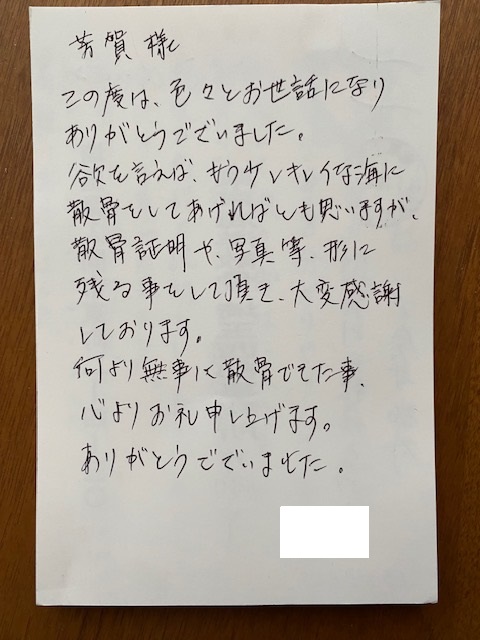 芳賀 様
この度は、色々とお世話になり
ありがとうございました。
欲を言えば、もう少しキレイな海に
散骨をしてあげればとも思いますが、
散骨証明や、写真等、形に
残る事をして頂き、大変感謝
しております。
何より無事に散骨できた事、
心よりお礼申し上げます。
ありがとうございました。